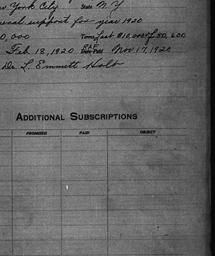 York City State N.Y.
support for year 1920
0,000 Terms, Last $10,000 of 50,600
Feb 18, 1920 Nov 17, 1920
Dr. L. Emmett Holt
ADDITIONAL SUBSCRIPTIONS
PROMISED PAID OBJECT